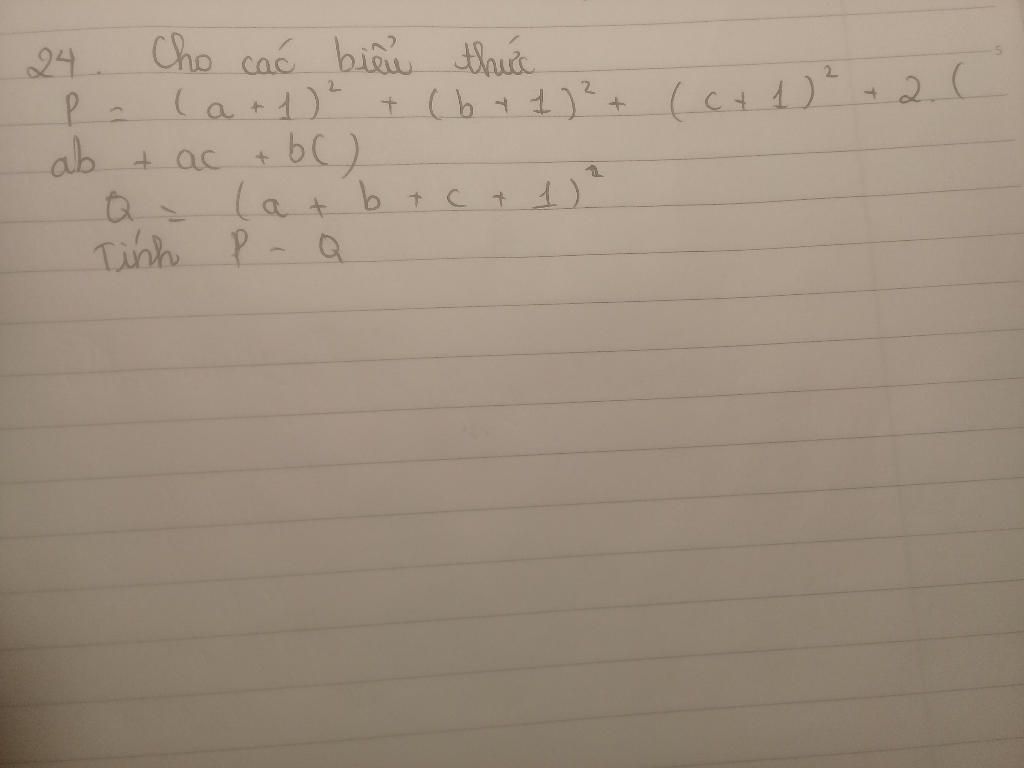 24. Cho các biểu thức
P = (a + 1)² + (b + 1)² + (c + 1)² + 2. (
ab + ac + bc)
Q = (a + b + c + 1)²
Tính P - Q